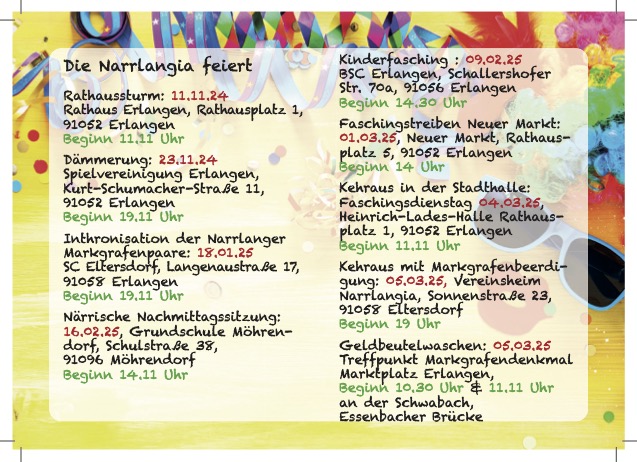 Die Narrlangia feiert
Rathaussturm: 11.11.24
Rathaus Erlangen, Rathausplatz 1,
91052 Erlangen
Beginn 11.11 Uhr
Dämmerung: 23.11.24
Spielvereinigung Erlangen,
Kurt-Schumacher-Straße 11,
91052 Erlangen
Beginn 19.11 Uhr
Inthronisation der Narrlanger
Markgrafenpaare: 18.01.25
SC Eltersdorf, Langenaustraße 17,
91058 Erlangen
Beginn 19.11 Uhr
Närrische Nachmittagssitzung:
16.02.25, Grundschule Möhren-
dorf, Schulstraße 38,
91096 Möhrendorf
Beginn 14.11 Uhr
Kinderfasching : 09.02.25
BSC Erlangen, Schallershofer
Str. 70a, 91056 Erlangen
Beginn 14.30 Uhr
Faschingstreiben Neuer Markt:
01.03.25, Neuer Markt, Rathaus-
platz 5, 91052 Erlangen
Beginn 14 Uhr
Kehraus in der Stadthalle:
Faschingsdienstag 04.03.25,
Heinrich-Lades-Halle Rathaus-
platz 1, 91052 Erlangen
Beginn 11.11 Uhr
Kehraus mit Markgrafenbeerdi-
gung: 05.03.25, Vereinsheim
Narrlangia, Sonnenstraße 23,
91058 Eltersdorf
Beginn 19 Uhr
Geldbeutelwaschen: 05.03.25
Treffpunkt Markgrafendenkmal
Marktplatz Erlangen,
Beginn 10.30 Uhr & 11.11 Uhr
an der Schwabach,
Essenbacher Brücke